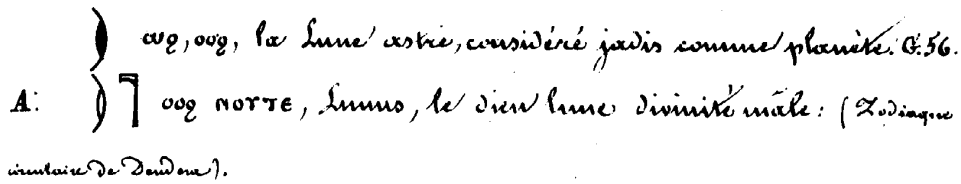 ⲱϩ, ⲟⲟϩ, la Lune astre, considéré jadis comme planète. G. 56.
A: ⲟⲟϩ ⲛⲟⲩⲧⲉ, Lunus, le dieu lune divinité mâle: (Zodiaque
circulaire de Dendera).